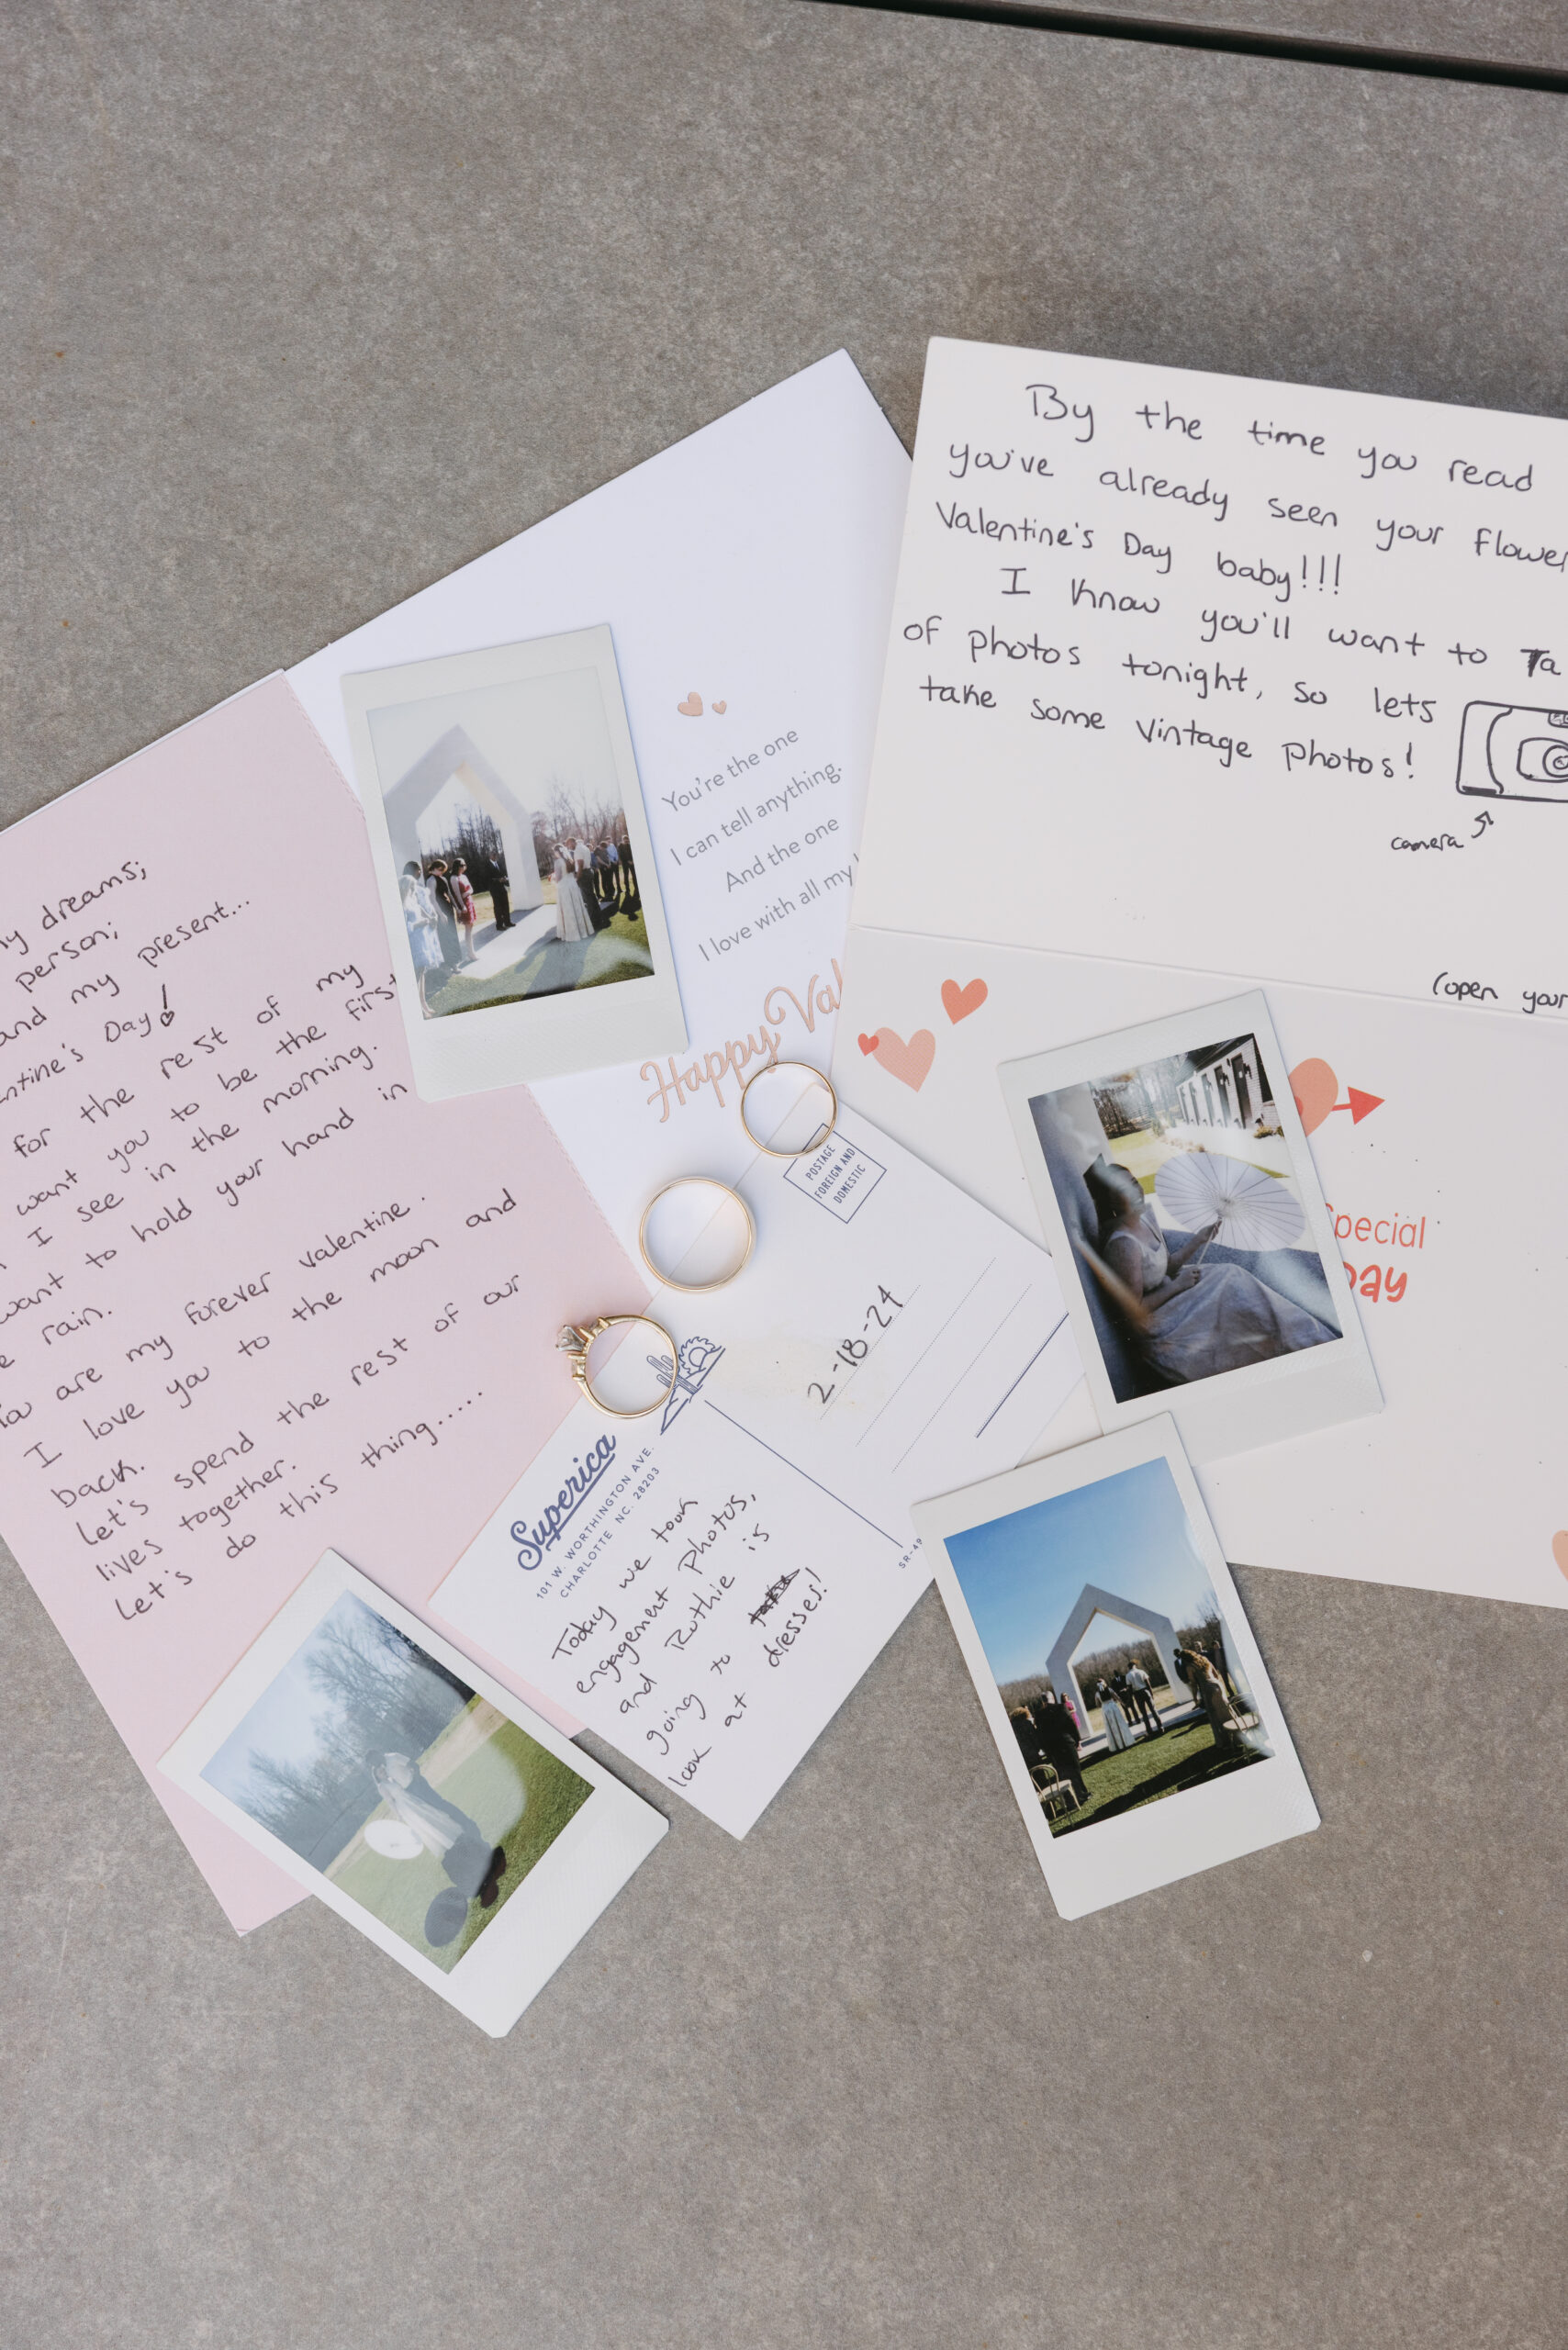 my dreams;
person;
and my present...
Valentine's Day!
for the rest of my
want you to be the first
I see in the morning.
want to hold your hand in
rain.
You are my forever valentine.
I love you to the moon and
back.
Let's spend the rest of our
lives together.
Let's do this thing.....
You're the one
I can tell anything.
And the one
I love with all my
Happy Val
By the time you read
you've already seen your flower
Valentine's Day baby!!!
I know you'll want to Ta
of photos tonight, so lets
take some vintage photos!
camera
(open your
Special
Day
POSTAGE
FOREIGN AND
DOMESTIC
2-18-24
Superica
101 W. WORTHINGTON AVE.
CHARLOTTE NC. 28203
SR-49
Today we took
engagement photos,
and Ruthie is
going to
look at dresses!